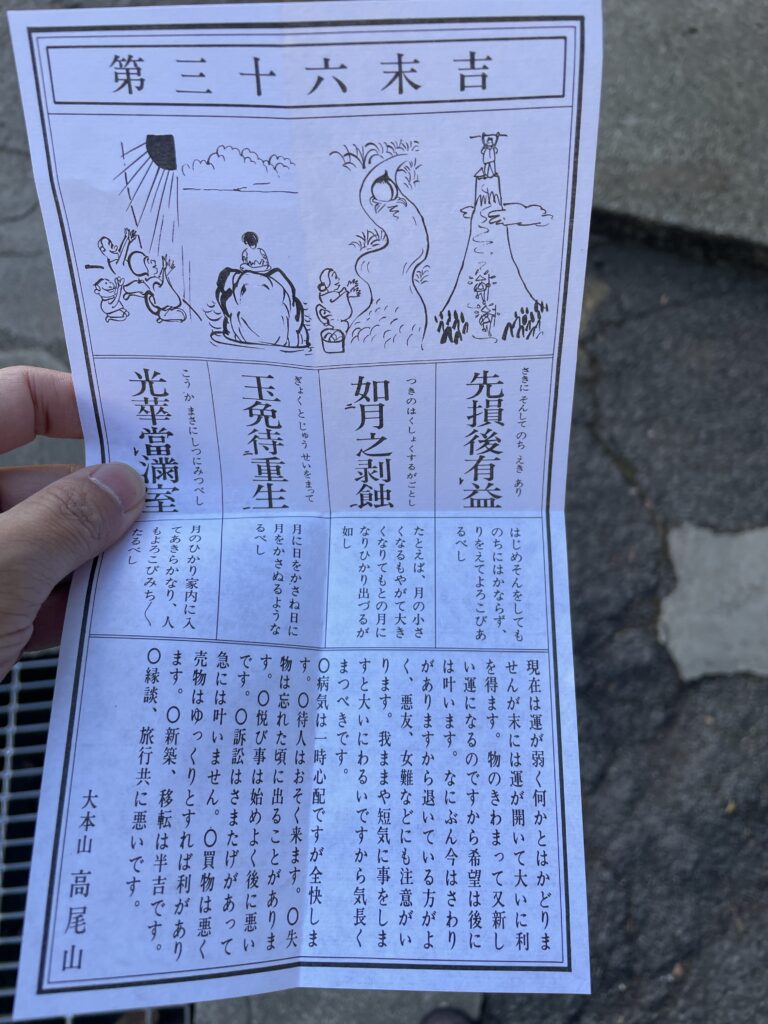 第三十六末吉
さきに そんして のち えき あり
先損後有益
つきのはくしょくするがごとし
如月之剥蝕
ぎょくと じゅう せいをまって
玉兔待重生
こう か まさにしつにみつべし
光華當滿室
はじめそんをしても
のちにはかならず、
りをえてよろこびあ
るべし
たとえば、月の小さ
くなるもやがて大き
くなりてもとの月に
なりひかり出づるが
如し
月に日をかさね日に
月をかさぬるような
るべし
月のひかり家内に入
てあきらかなり、人
もよろこびみち〱
たるべし
現在は運が弱く何かとはかどりま
せんが末には運が開いて大いに利
を得ます。物のきわまって又新し
い運になるのですから希望は後に
は叶います。なにぶん今はさわり
がありますから退いている方がよ
く、悪友、女難などにも注意がい
ります。我ままや短気に事をしま
すと大いにわるいですから気長く
まつべきです。
〇病気は一時心配ですが全快しま
す。〇待人はおそく来ます。〇失
物は忘れた頃に出ることがありま
す。〇悦び事は始めよく後に悪い
です。〇訴訟はさまたげがあって
急には叶いません。〇買物は悪く
売物はゆっくりとすれば利があり
ます。〇新築、移転は半吉です。
〇縁談、旅行共に悪いです。
大本山 高尾山